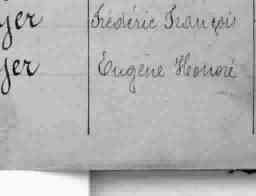 yer Frédéric François
yer Eugène Honoré